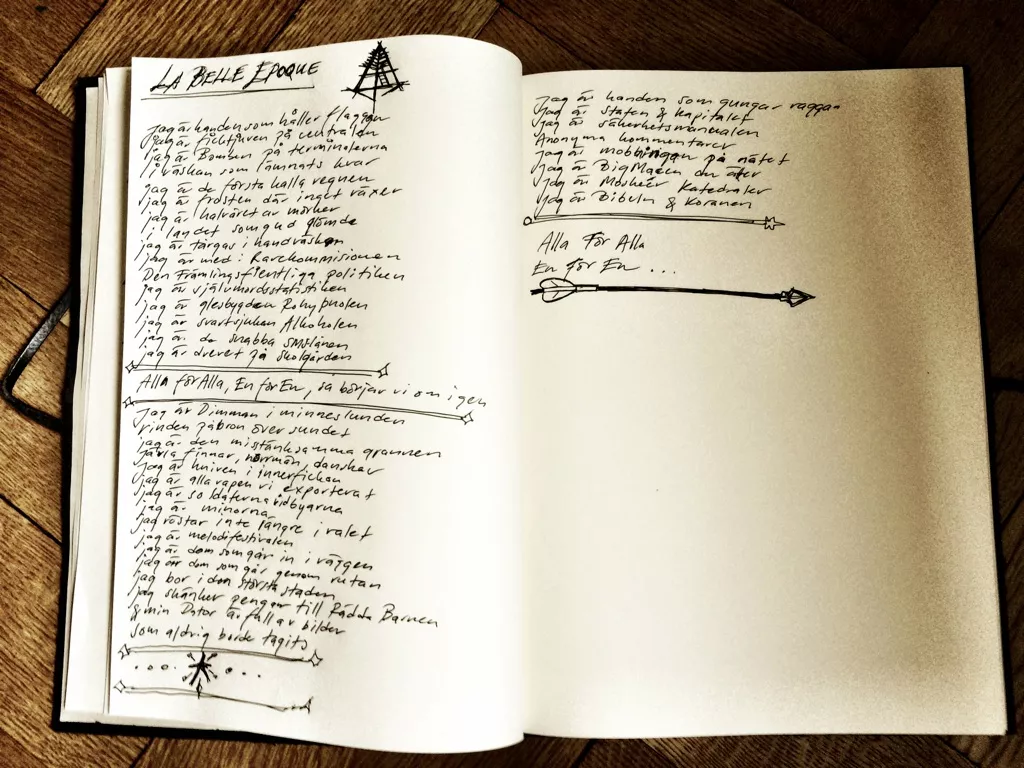 LA BELLE EPOQUE
Jag är handen som håller flaggan
jag är fickjuven på centralen
jag är Bomben på terminalerna
i väskan som lämnats kvar
jag är de första kalla regnen
jag är frosten där inget växer
jag är halvåret av mörker
i landet som gud glömde
jag är tårgas i handväskan
jag är med i Havekommisionen
Den Främlingsfientliga politiken
jag är självmordsstatistiken
jag är glesbygden Rohypnolen
jag är svartsjukan Alkoholen
jag är de snabba smslånen
jag är dveret på skolgården
Alla för Alla, En för En, så börjar vi om igen
Jag är Dimman i minneslunden
vinden på bron över sundet
jag är den misstänksamma grannen
Jävla finnar, norrmän, danskar
Jag är kniven i innerfickan
jag är alla vapen vi exporterat
jag är soldaterna vid byarna
jag är minorna
Jag röstar inte längre i valet
jag är melodifestivalen
jag är dom som går in i väggen
jag är dom som går genom rutan
jag bor i den största staden
jag skänker pengar till Rädda Barnen
& min Dator är full av bilder
som aldrig borde tagits
Jag är handen som gungar vaggan
Jag är Staten & Kapitalet
Jag är säkerhetsmanualen
Anonyma kommentarer
Jag är mobbningen på nätet
Jag är BigMacen du äter
Jag är Moskéer Katedraler
Jag är Bibeln & Koranen
Alla För Alla
En för En ...